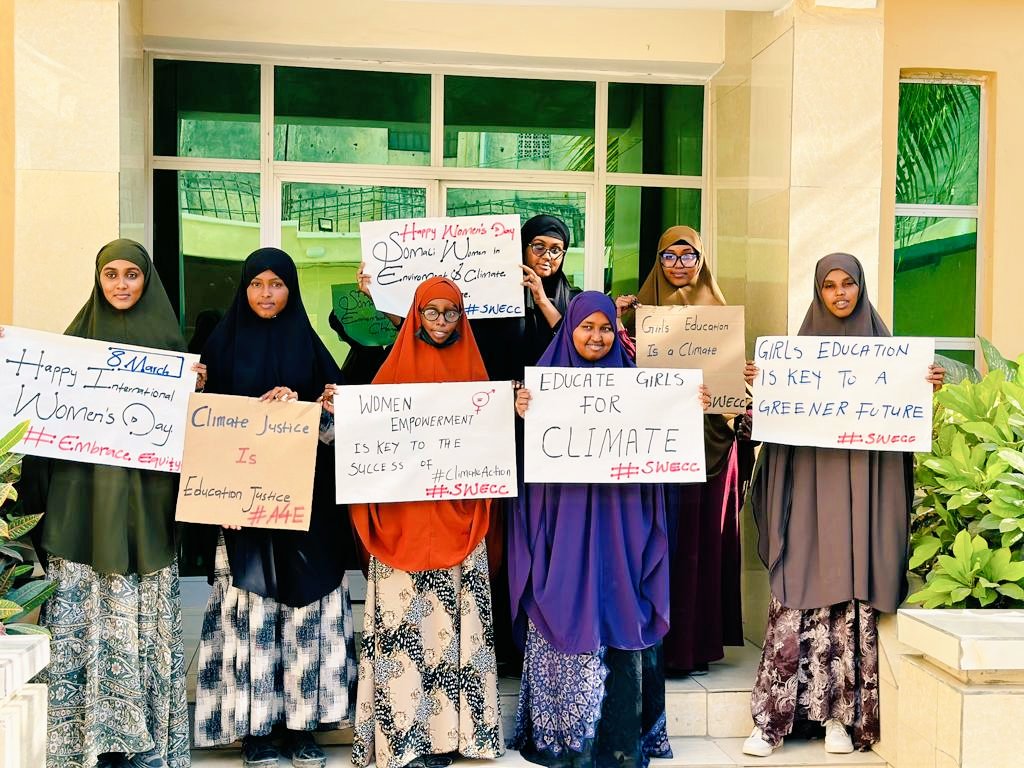 8 March
Happy International
Women's Day
#Embrace Equity
Climate Justice
Is
Education Justice
#A4E
Happy Women's Day
Somali Women in
Enviroment & Climate
#SWECC
WOMEN
EMPOWERMENT
IS KEY TO THE
SUCCESS OF
#ClimateAction
#SWECC
EDUCATE GIRLS
FOR
CLIMATE
#SWECC
Girls Education
Is a Climate
SWECC
GIRLS EDUCATION
IS KEY TO A
GREENER FUTURE
#SWECC